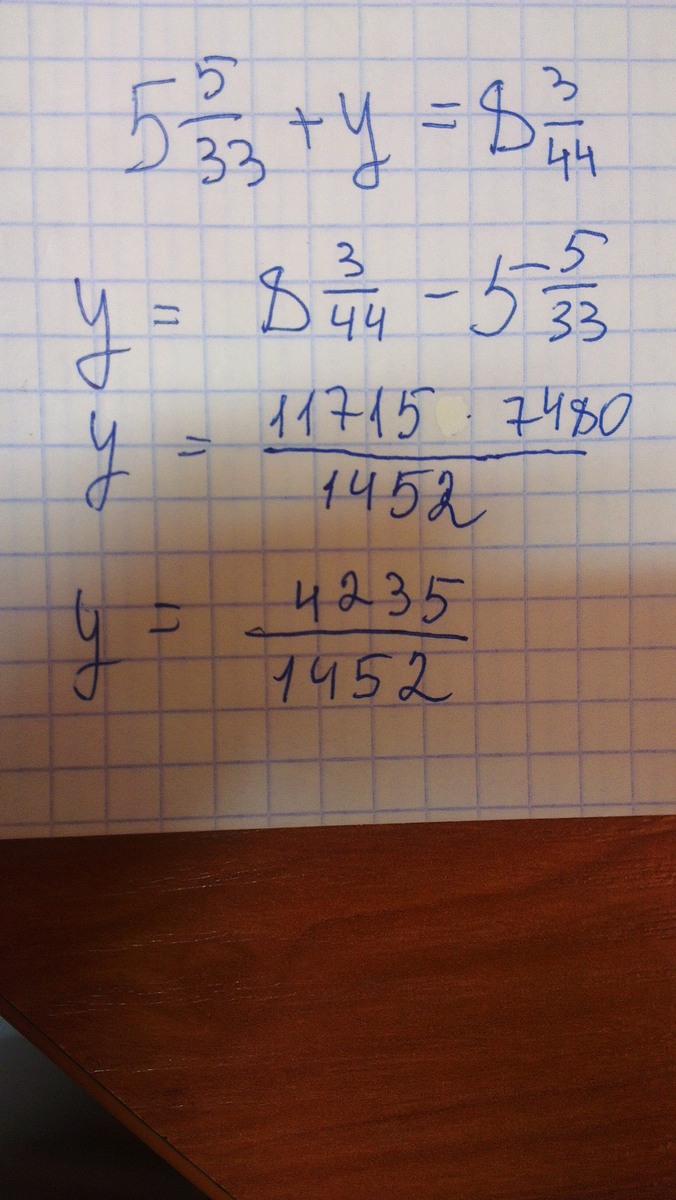 5 5/33 + y = 8 3/44
y = 8 3/44 - 5 5/33
y = 11715 · 7480 / 1452
y = 4235 / 1452